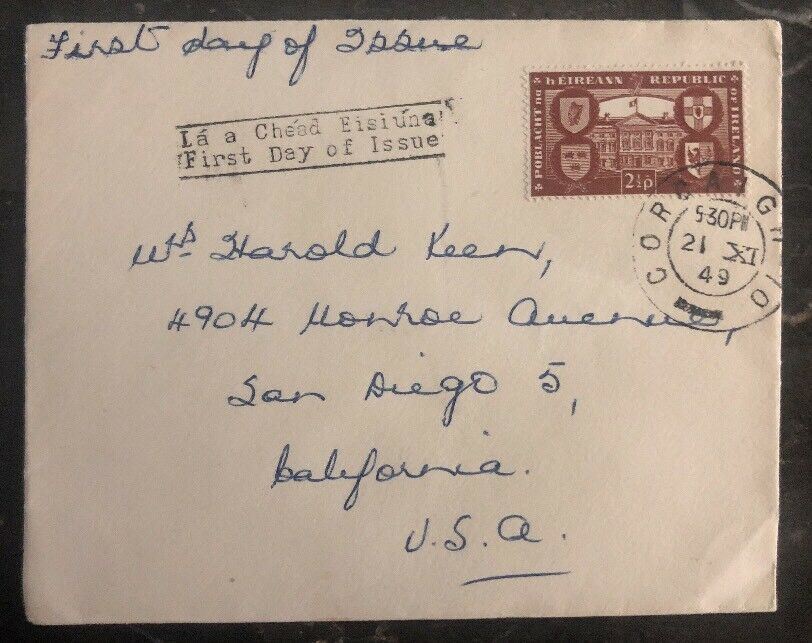 First day of Issue
Lá a Chéad Eisiúna
First Day of Issue
POBLACHT NA hÉIREANN REPUBLIC OF IRELAND
2½p
CORCAIGH
5.30PM
21 XI
49
Mrs Harold Keen,
4904 Monroe Avenue,
San Diego 5,
California.
U.S.A.